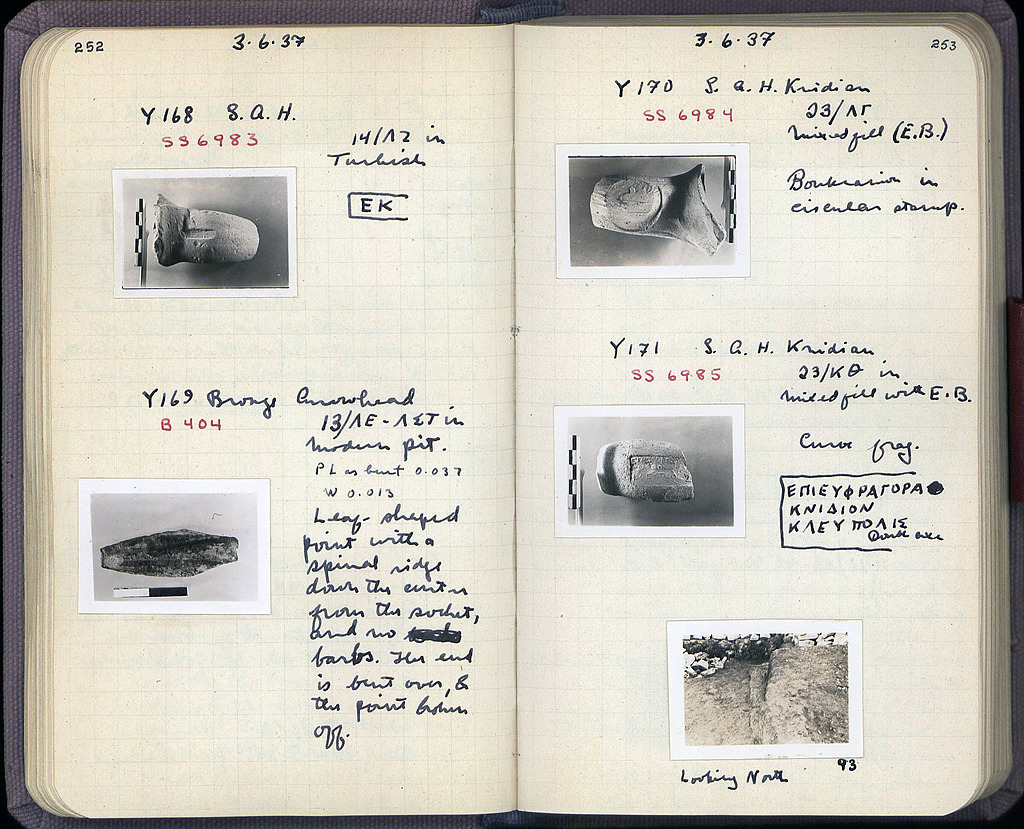 252
3·6·37
Y168 S.A.H.
SS6983
14/ΛΖ in
Turkish
EK
Y169 Bronze Arrowhead
B 404
13/ΛΕ-ΛΣΤ in
modern pit.
PL as bent 0.037
W 0.013
Leaf-shaped
point with a
spinal ridge
down the center
from the socket,
and no
barbs. The end
is bent over, &
the point broken
off.
3·6·37
253
Y170 S.A.H. Knidian
SS 6984
23/ΛΓ
mixed fill (E.B.)
Boukranion in
circular stamp.
Y171 S.A.H. Knidian
SS 6985
23/ΚΘ in
mixed fill with E.B.
Curve frag.
ΕΠΙΕΥΦΡΑΓΟΡΑ
ΚΝΙΔΙΟΝ
ΚΛΕΥΠΟΛΙΣ
Double axe
93
Looking North